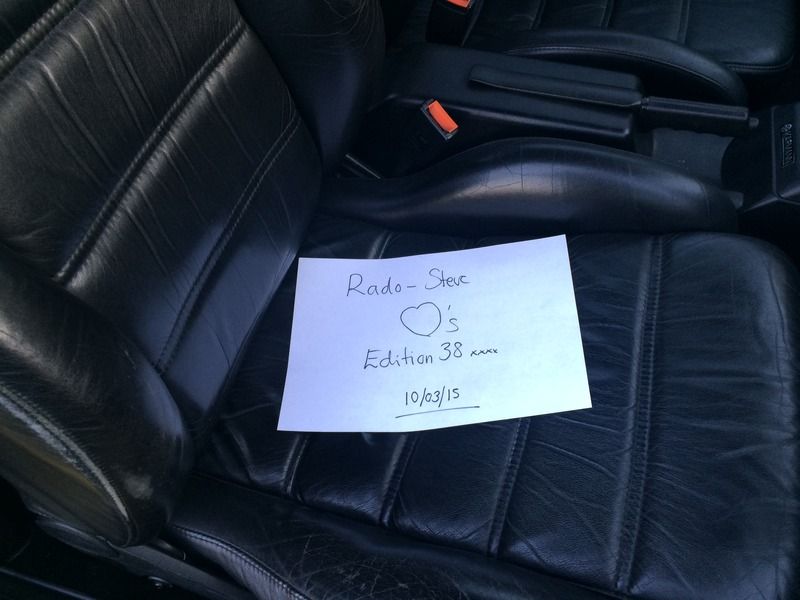 Rado - Steve
♡'s
Edition 38 xxxx
10/03/15